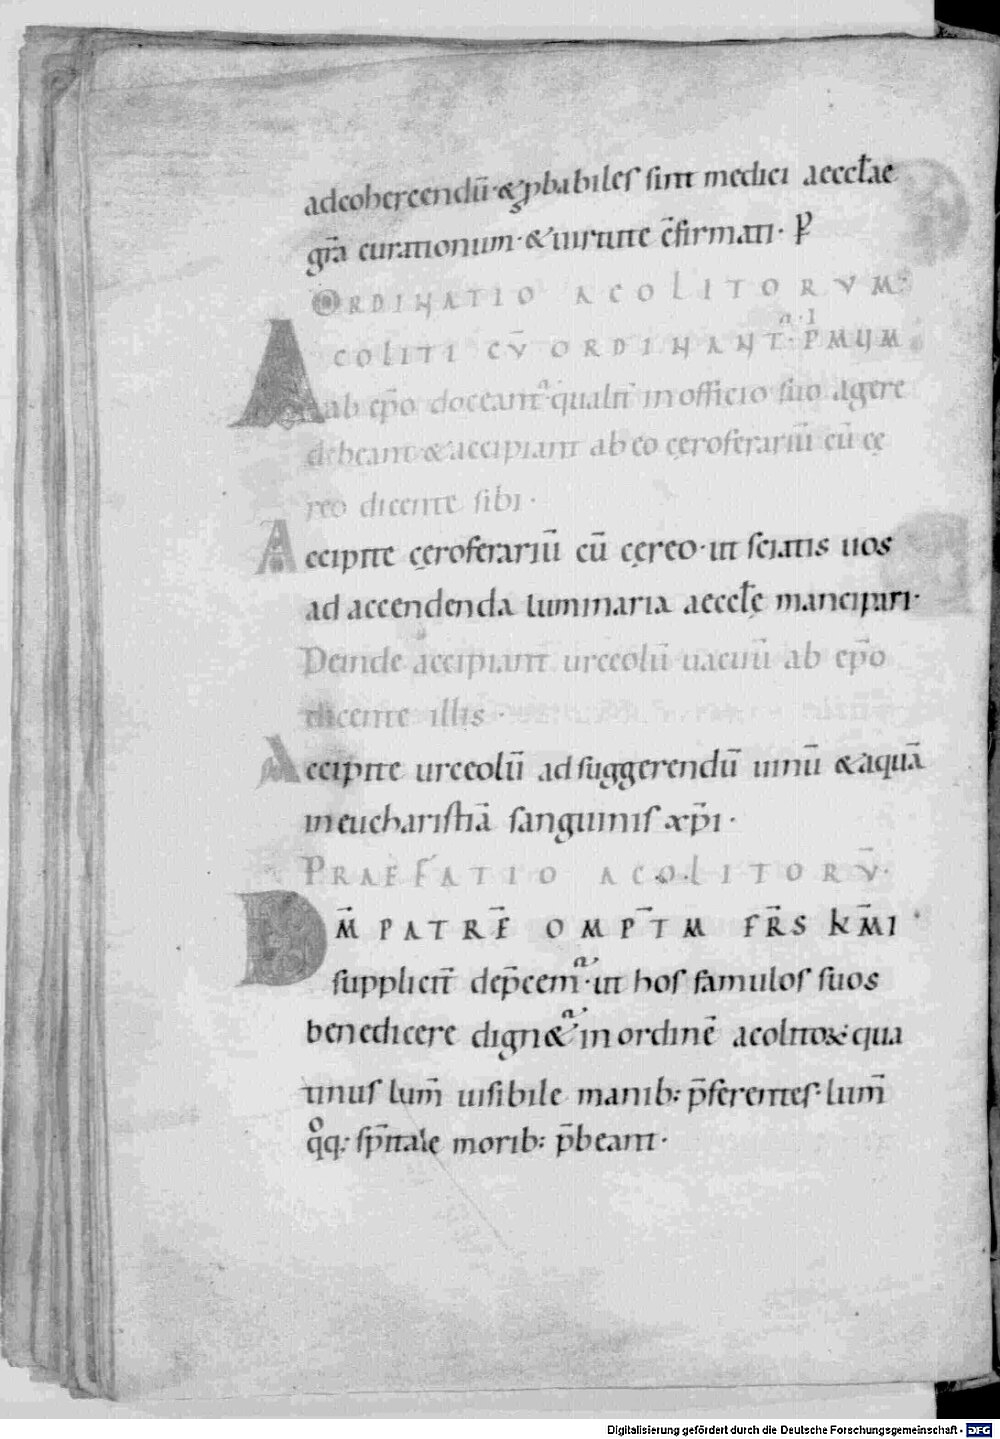 adcohercendū·&ꝓbabiles sint medici aeccłae
gr̄a curationum·&uirtute c̄firmati· P̄
ORDINATIO ACOLITORVM·
ACOLITI CV̄ ORDINANT̄·PMUM
ab ep̄o doceant qualit̄ inofficio suo agere
debeant &accipiant abeo cęroferariū cū cę
reo dicente sibi·
Accipite cęroferariū cū cęreo·ut sciatis uos
ad accendenda luminaria aeccłę mancipari·
Deinde accipiant urceolū uacuū ab ep̄o
dicente illis·
Accipite urceolū adsuggerendū uinū &aquā
ineucharistiā sanguinis xp̄i·
PRAEFATIO ACOLITORV̄·
DM̄ PATRĒ OMPT̄M FR̄S KM̄I
supplicit̄ dep̄cem̄·ut hos famulos suos
benedicere dign&ur inordinē acolitoꝝ·qua
tinus lum̄ uisibile manib: p̄ferentes·lum̄
qͦq: sp̄itale morib: p̄beant·
Digitalisierung gefördert durch die Deutsche Forschungsgemeinschaft - DFG